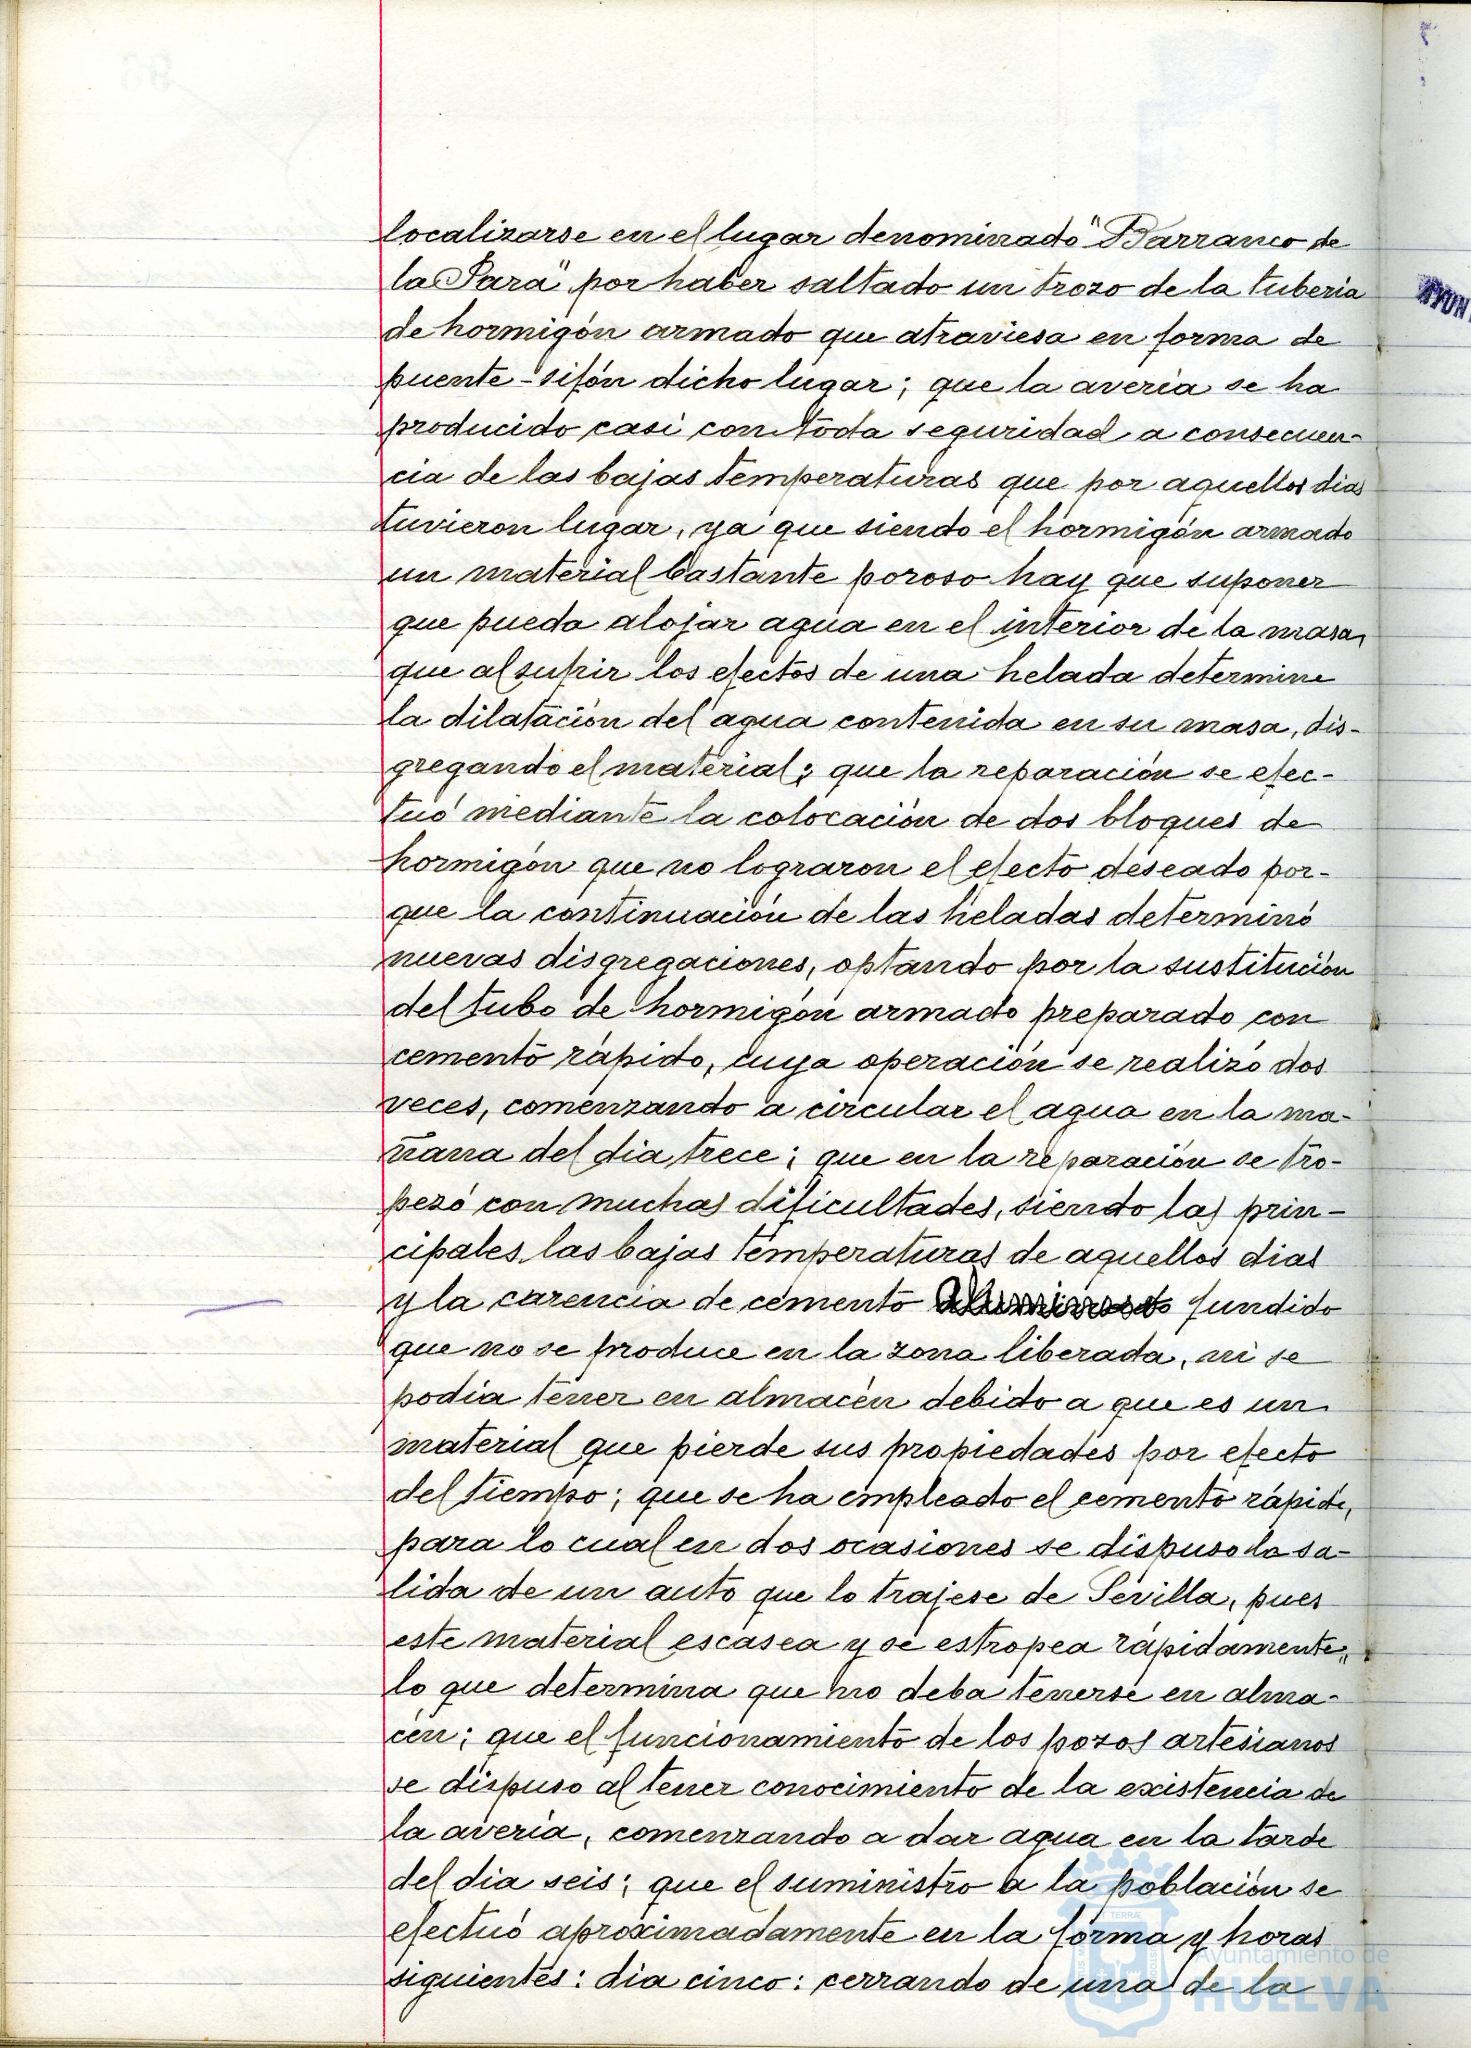 localizarse en el lugar denominado "Barranco de
la Para" por haber saltado un trozo de la tuberia
de hormigón armado que atraviesa en forma de
puente-sifón dicho lugar; que la avería se ha
producido casi con toda seguridad a consecuen-
cia de las bajas temperaturas que por aquellos dias
tuvieron lugar, ya que siendo el hormigón armado
un material bastante poroso hay que suponer
que pueda alojar agua en el interior de la masa,
que al sufrir los efectos de una helada determine
la dilatación del agua contenida en su masa, dis-
gregando el material; que la reparación se efec-
tuó mediante la colocación de dos bloques de
hormigón que no lograron el efecto deseado por-
que la continuación de las heladas determinó
nuevas disgregaciones, optando por la sustitución
del tubo de hormigón armado preparado con
cemento rápido, cuya operación se realizó dos
veces, comenzando a circular el agua en la ma-
ñana del dia trece; que en la reparación se tro-
pezó con muchas dificultades, siendo las prin-
cipales las bajas temperaturas de aquellos dias
y la carencia de cemento fundido
que no se produce en la zona liberada, ni se
podia tener en almacén debido a que es un
material que pierde sus propiedades por efecto
del tiempo; que se ha empleado el cemento rápido,
para lo cual en dos ocasiones se dispuso la sa-
lida de un auto que lo trajese de Sevilla, pues
este material escasea y se estropea rápidamente,
lo que determina que no deba tenerse en alma-
cén; que el funcionamiento de los pozos artesianos
se dispuso al tener conocimiento de la existencia de
la avería, comenzando a dar agua en la tarde
del dia seis; que el suministro a la población se
efectuó aproximadamente en la forma y horas
siguientes: dia cinco: cerrando de una de la
Ayuntamiento de
HUELVA